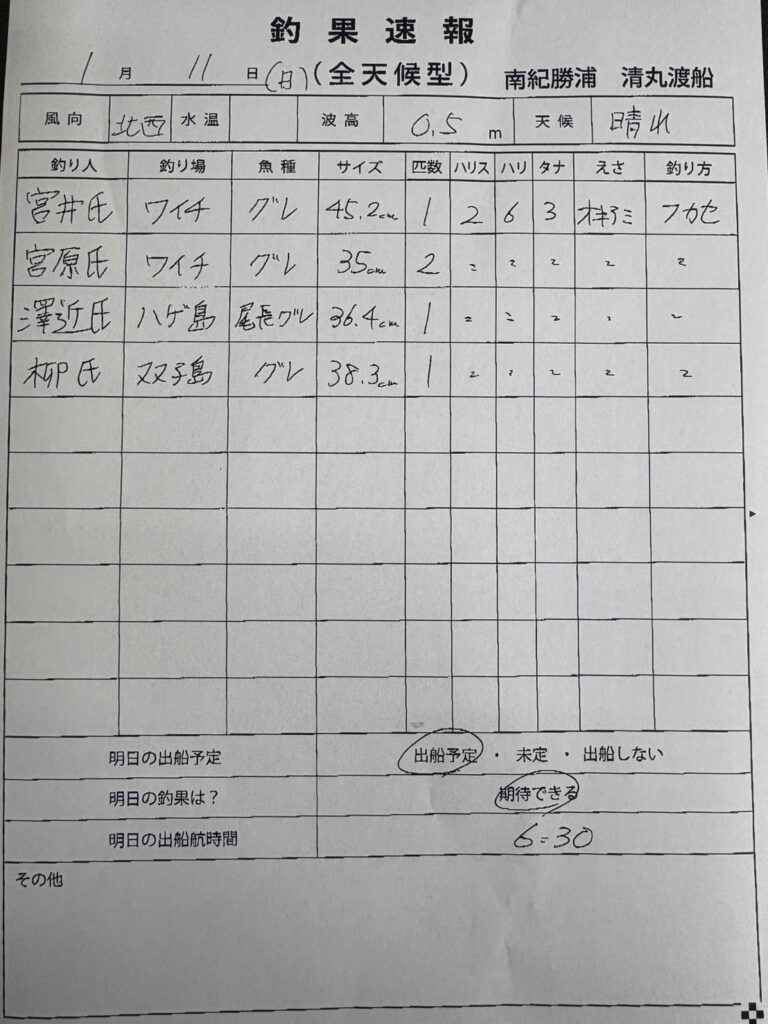 釣果速報
1月11日(日)(全天候型) 南紀勝浦 清丸渡船
風向 北西 水温 波高 0.5m 天候 晴れ
釣り人 釣り場 魚種 サイズ 匹数 ハリス ハリ タナ えさ 釣り方
宮井氏 ワイチ グレ 45.2cm 1 2 6 3 オキアミ フカセ
宮原氏 ワイチ グレ 35cm 2 〃 〃 〃 〃 〃
澤近氏 ハゲ島 尾長グレ 36.4cm 1 〃 〃 〃 〃 〃
柳氏 双子島 グレ 38.3cm 1 〃 〃 〃 〃 〃
明日の出船予定 出船予定 ・ 未定 ・ 出船しない
明日の釣果は? 期待できる
明日の出船航時間 6:30
その他